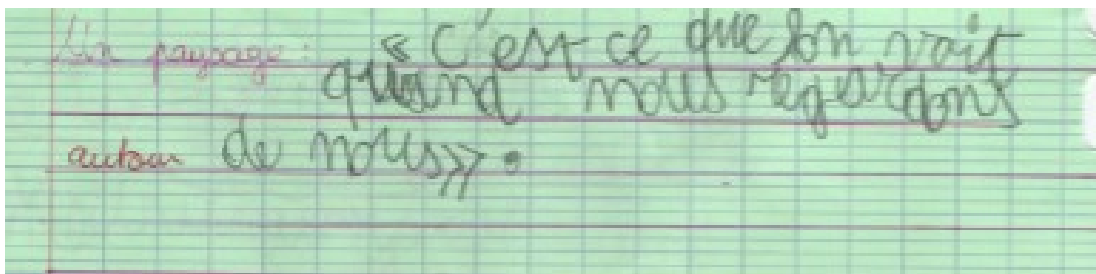 Un paysage : « C'est ce que l'on voit
quand nous regardons
autour de nous» .